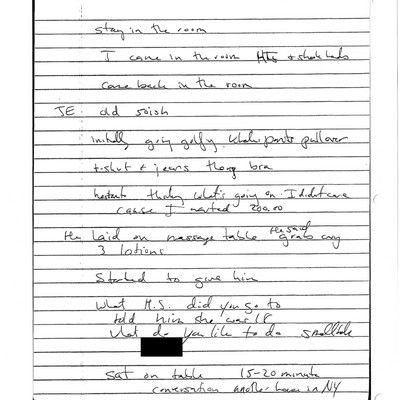 stay in the room
I came in the room + shook hands
come back in the room
JE old 50ish
initially going golfy khaki pants pullover
t-shirt + jeans thong bra
hesitant thinking what's going on I didn't care
cause I wanted 200.00
He laid on massage table He said grab any
3 lotions
Started to give him
what H.S. did you go to
told him she was 18
what do you like to do smalltalk
sat on table 15-20 minute
conversation another house in NY